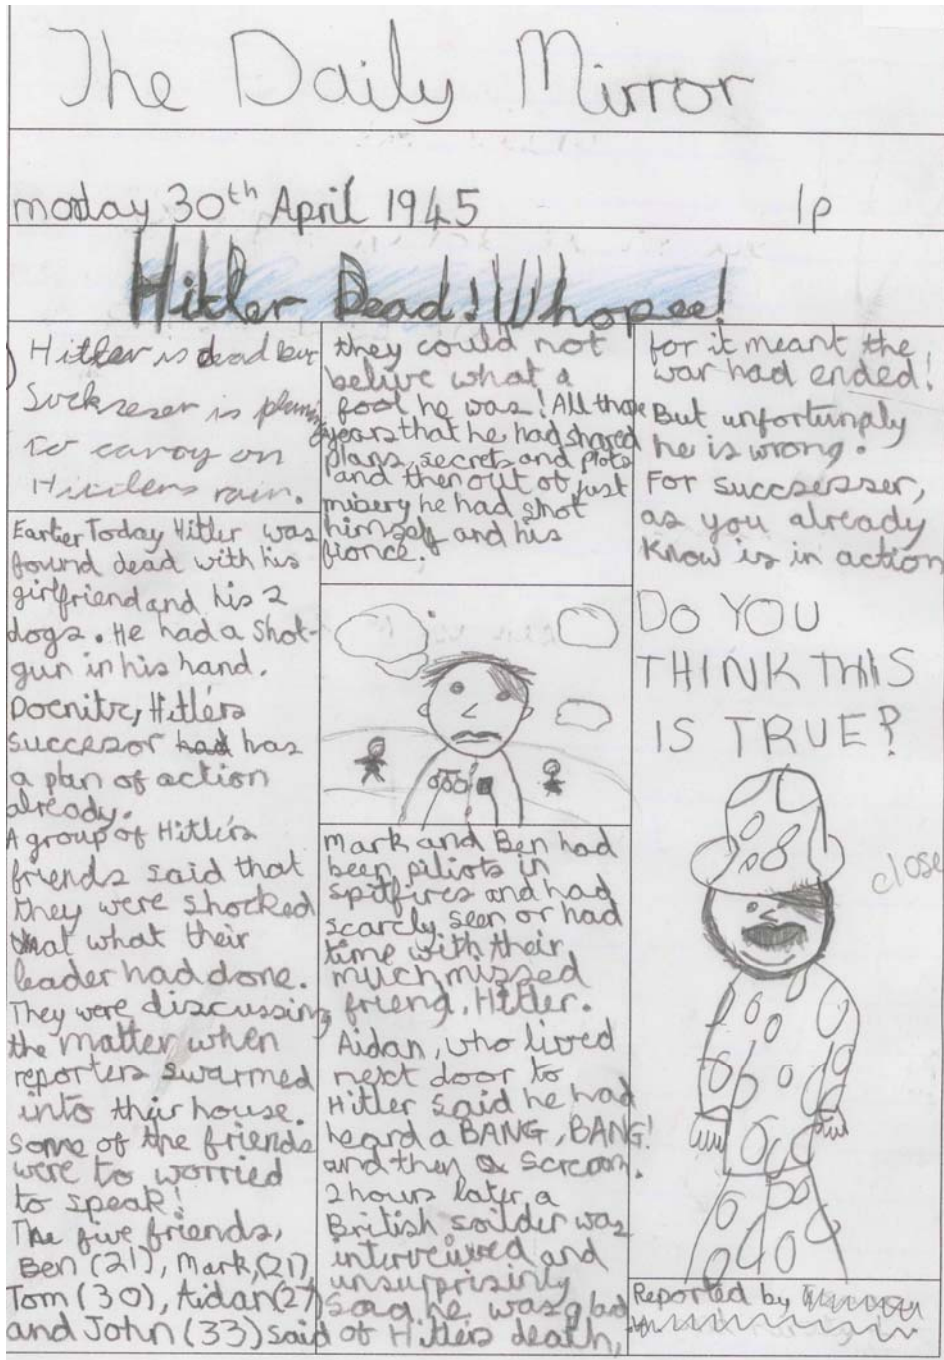 The Daily Mirror
monday 30th April 1945 1p
Hitler Dead! Whopee!
Hitler is dead but
Sucksesor is planing
to carroy on
Hitlers rain.
Earlier Today Hitler was
found dead with his
girlfriend and his 2
dogs. He had a shot-
gun in his hand.
Docnitz, Hitler's
succesor had has
a plan of action
already.
A group of Hitler's
friends said that
they were shocked
that what their
leader had done.
They were discussing
the matter when
reporters swarmed
into their house.
Some of the friends
were to worried
to speak!
The five friends,
Ben (21), Mark,(21),
Tom (30), Aidan(27)
and John (33) said
they could not
belive what a
fool he was! All those
years that he had shared
plans, secrets and plots
and then out of just
misery he had shot
himself and his
fionce.
Mark and Ben had
been piliots in
spitfires and had
scarcly seen or had
time with their
much missed
friend, Hitler.
Aidan, who lived
next door to
Hitler said he had
heard a BANG, BANG!
and then a scream.
2 hours later a
British soilder was
interveiwed and
unsurprisinly
said he was glad
of Hitlers death,
for it meant the
war had ended!
But unfortunply
he is wrong.
For succsesser,
as you already
know is in action
DO YOU
THINK THIS
IS TRUE?
close
Reported by